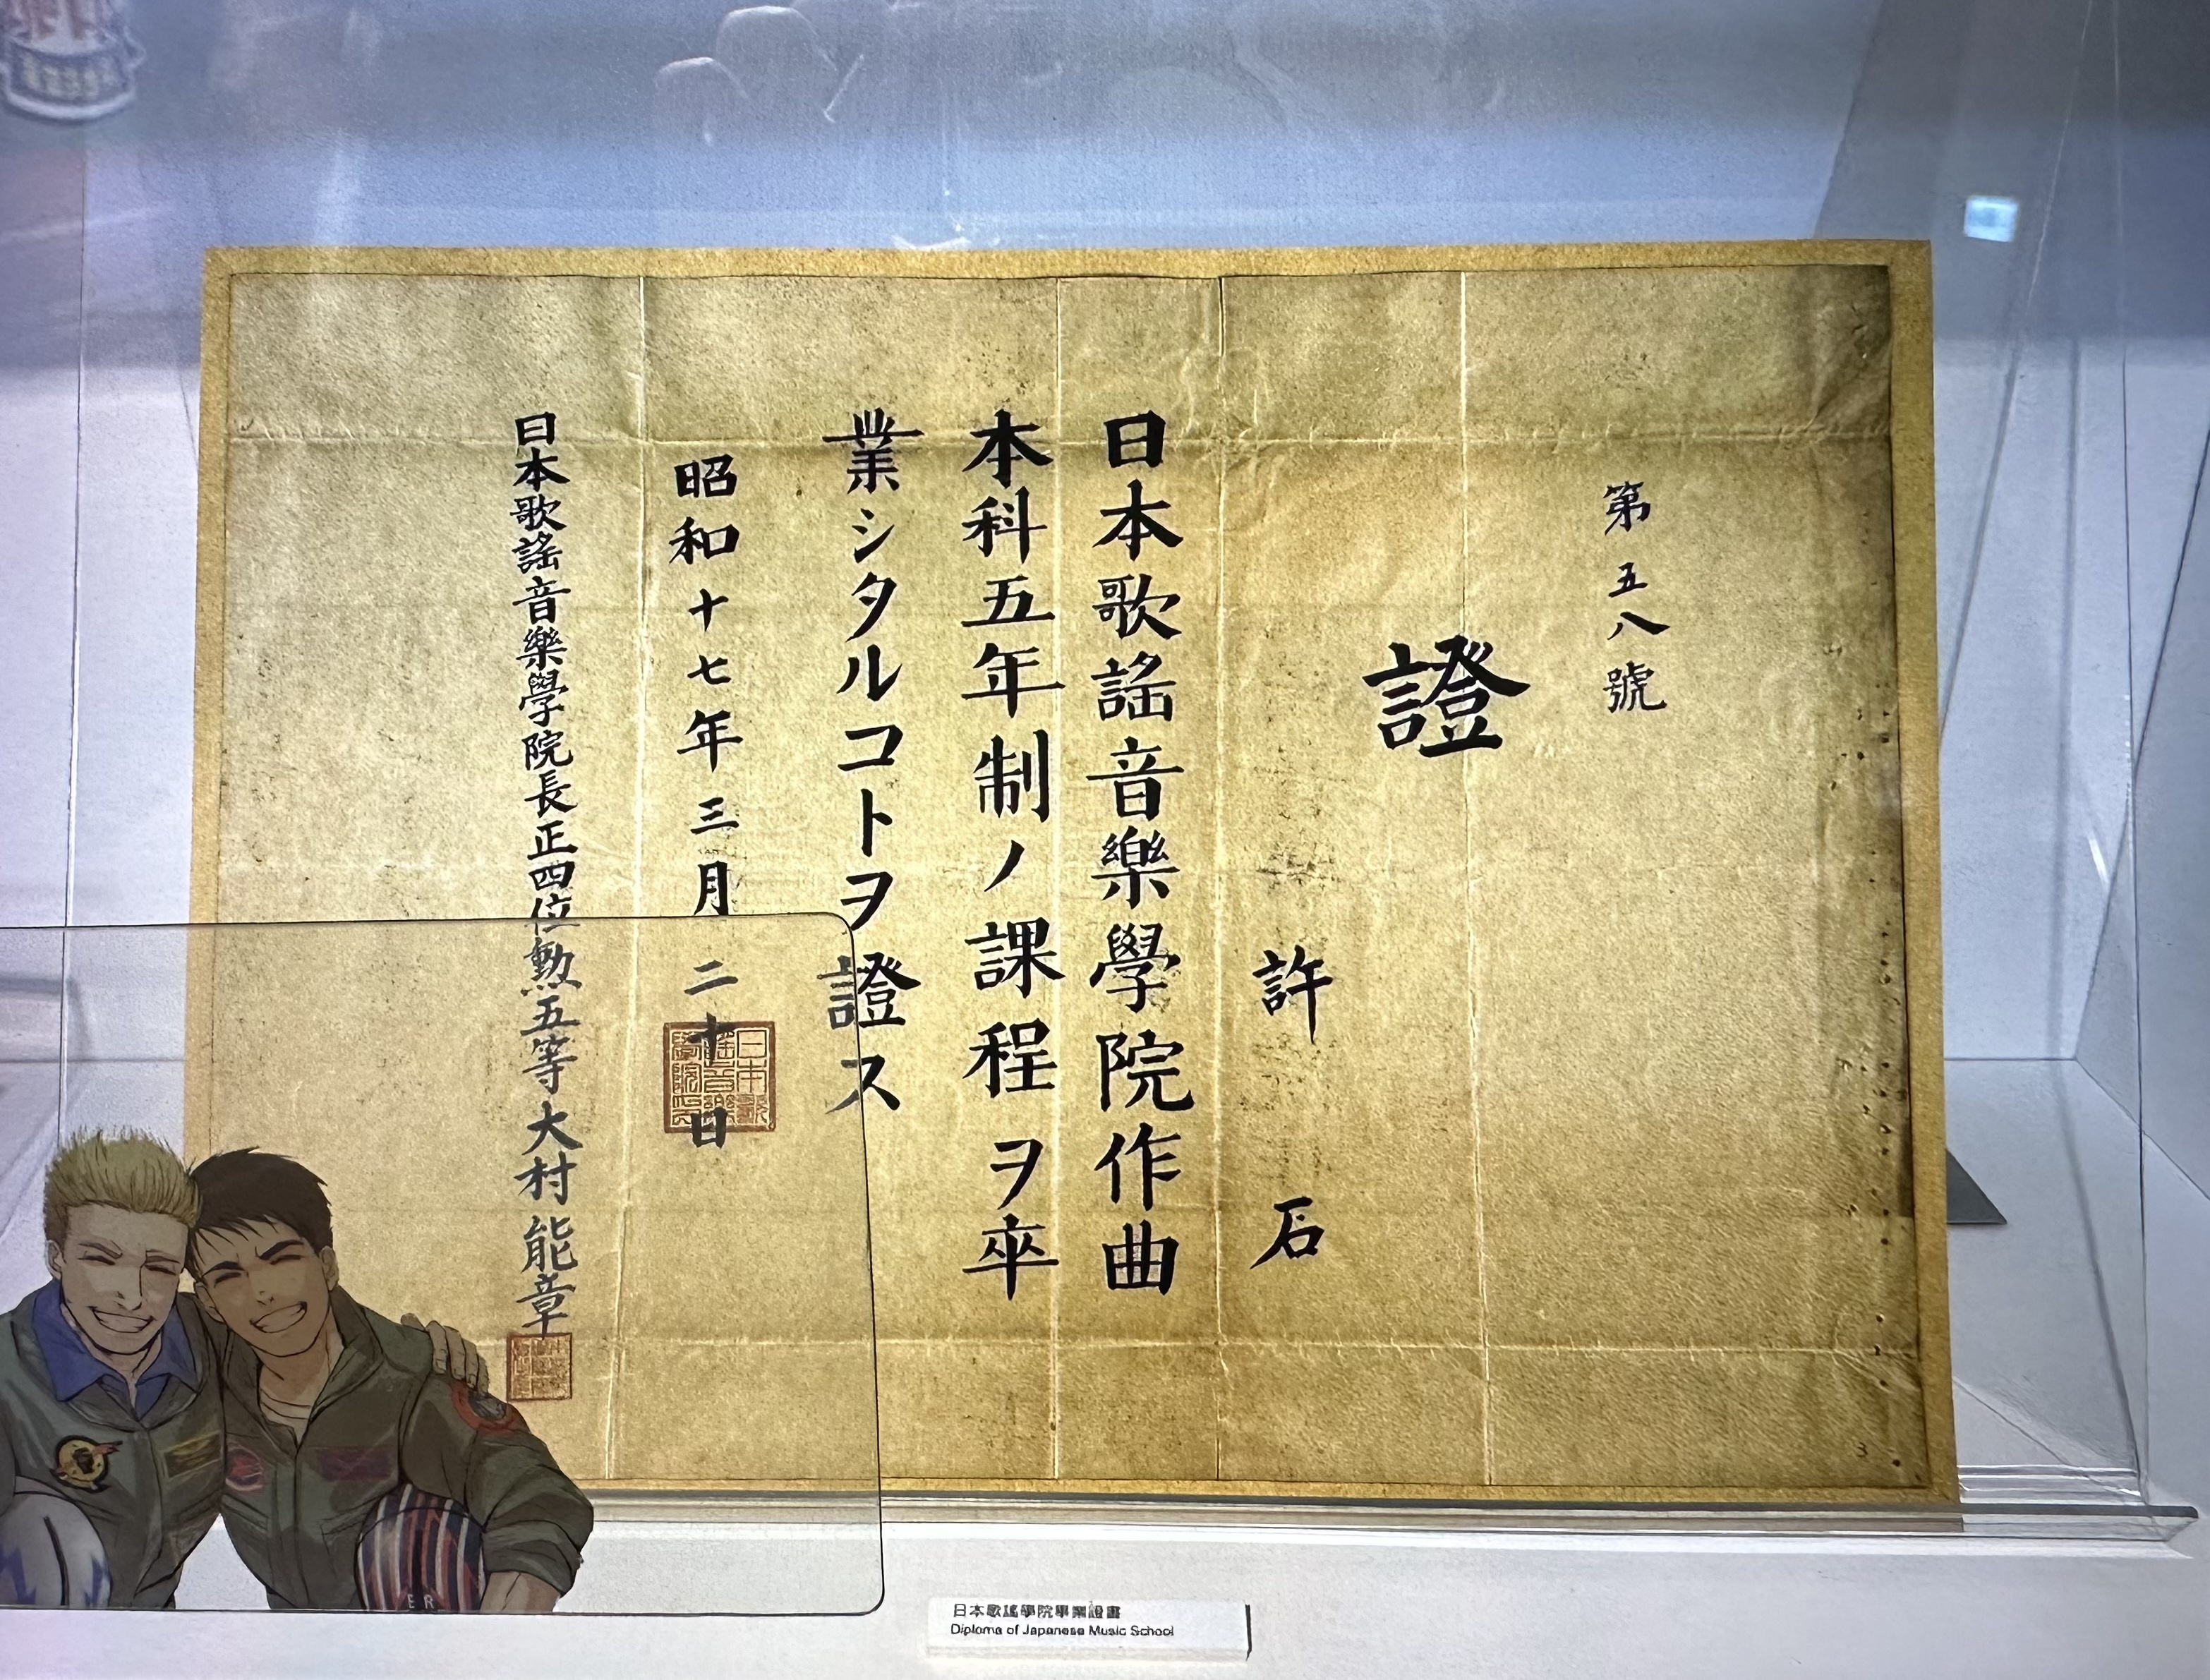 第五八號
證
許石
日本歌謠音樂學院作曲
本科五年制ノ課程ヲ卒
業シタルコトヲ證ス
昭和十七年三月二十日
日本歌謠音樂學院長正四位勲五等大村能章
日本歌謠音樂學院印
3
日本歌謠學院畢業證書
Diploma of Japanese Music School
ER